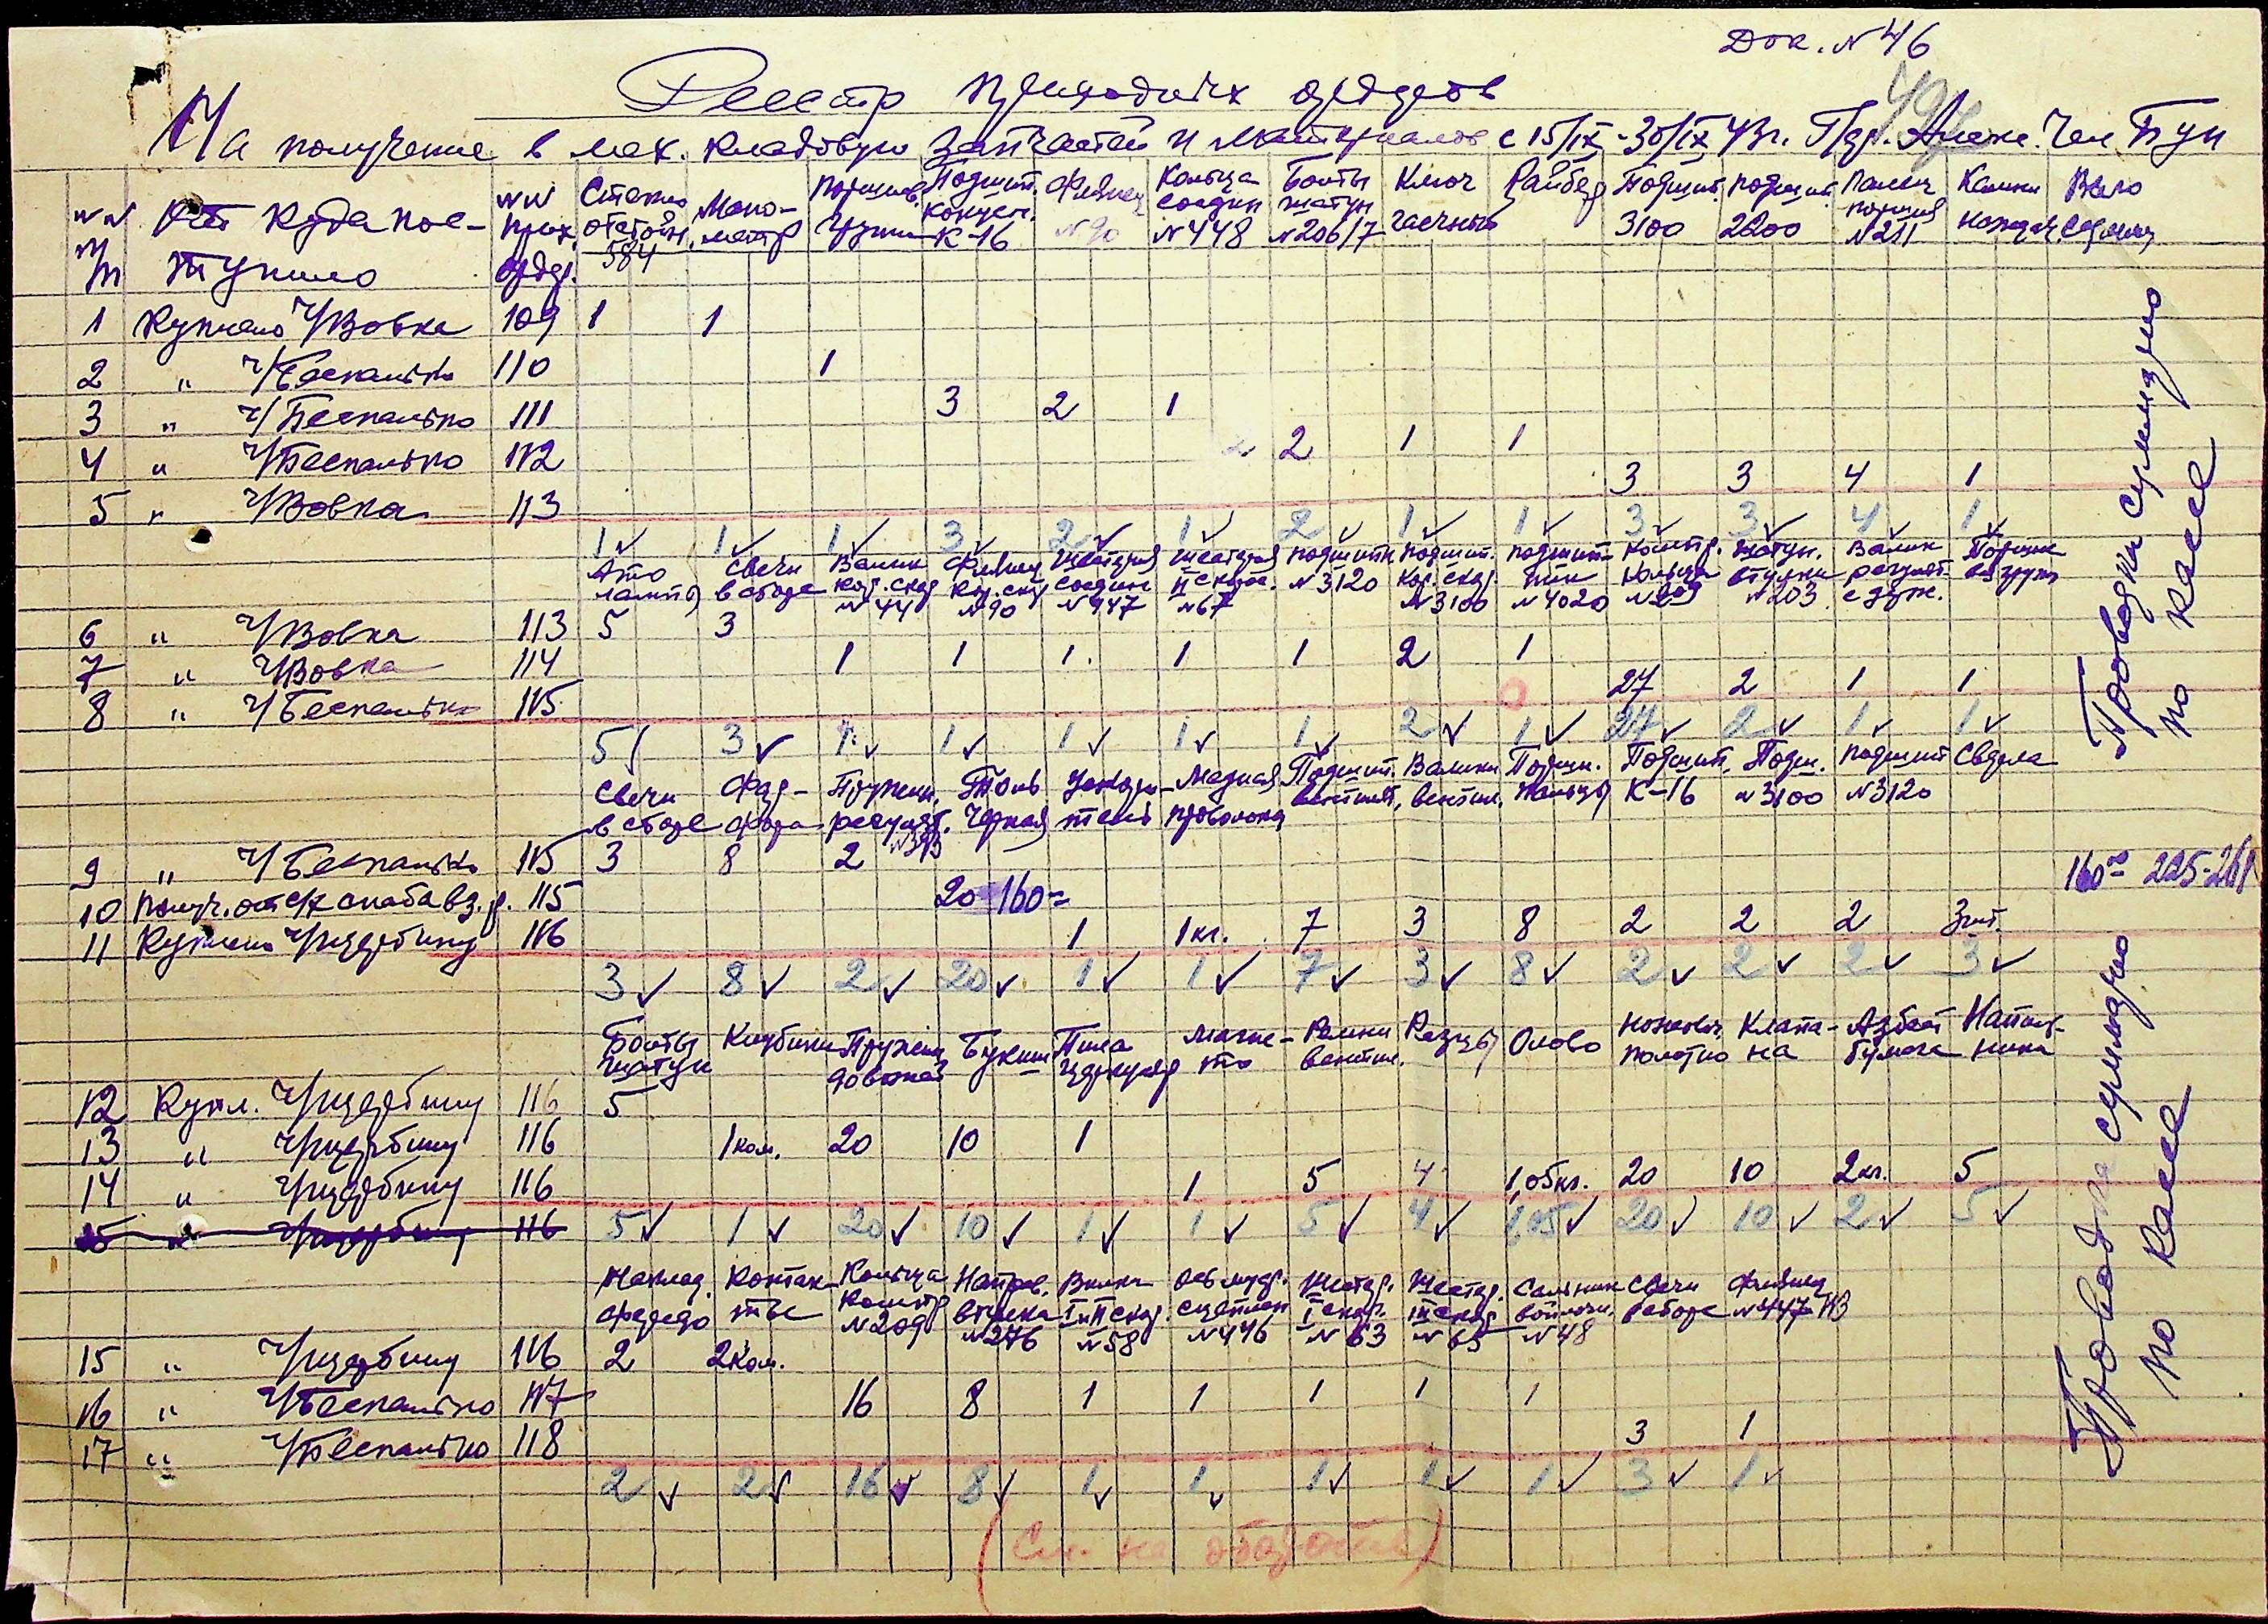 Док. № 46
Реестр приходных ордеров
На получение в мех. кладовую запчастей и материалов с 15/IX-30/IX 43 г.
№№ п/п От куда поступило №№ прих. орд. Стекло отстойн. 584 Мано-метр Подшип. концен. К-16 Фланец №90 Кольца соедин №448 Болты шатун №206/7 Ключ гаечный Райбер Подшип. 3100 подшип. 2200 Палец поршня №211
1 Куплено ч/Вовка 109 1 1
2 " ч/Беспалько 110 1
3 " ч/Беспалько 111 3 2 1
4 " ч/Беспалько 112 2 1 1
5 " ч/Вовка 113 3 3 4 1
1 1 1 3 2 1 2 1 1 3 3 4 1
свечи в сборе Валик кор. скор №44 Фланец кор. ск №90 Шестерня соедин №447 Шестерня II скор. №67 подшипн №3120 подшип. кор. скор. №3100 подшип-ник №4020 контр. кольца №209 шатун. втулки №203 Валик регулят. с груж.
6 " ч/Вовка 113 5 3
7 " ч/Вовка 114 1 1 1 1 1 2 1
8 " ч/Беспалько 115 27 2 1 1
5 3 1 1 1 1 1 2 1 27 2 1 1
свечи в сборе Фар-фора Пружин. регулят. №393 Толь черная Медная проволока Подшип. вентилят. Валики вентил. Поршн. пальцы Подшип. К-16 Подш. №3100 подшип №3120 Сверла
9 " ч/Беспалько 115 3 8 2
10 Получ. от с/х снаба вз. р. 115 20 160=
160= 225-261
11 Куплено ч/Щербину 116 1 1 кг. 7 3 8 2 2 2 3 шт.
3 8 2 20 1 1 7 3 8 2 2 2 3
Болты шатун Пружины Пила циркуляр Магне-то Ремни вентил. Резцы Олово ножовоч. полотно Клапа-на Азбест бумага
12 Купл. ч/Щербину 116 5
13 " ч/Щербину 116 1 ком. 20 10 1
14 " ч/Щербину 116 1 5 4 1,05 кг. 20 10 2 кг. 5
15 " ч/Щербину 116 5 1 20 10 1 1 5 4 1,05 20 10 2 5
Наклад. ферадо Контак-ты Кольца контр №209 Направ. втулка №276 Вилка I и II скор. №58 Ось мудр. сцеплен №446 Шестер. I скор. №63 Шестер. III скор №65 Сальник войлочн. №48 Свечи в сборе Фланец
15 " ч/Щербину 116 2 2 ком.
16 " ч/Беспалько 117 16 8 1 1 1 1 1
17 " ч/Беспалько 118 3 1
2 2 16 8 1 1 1 1 1 3 1
(См. на обороте)
Проводки суммарно
по кассе
Проводка суммарно
по кассе